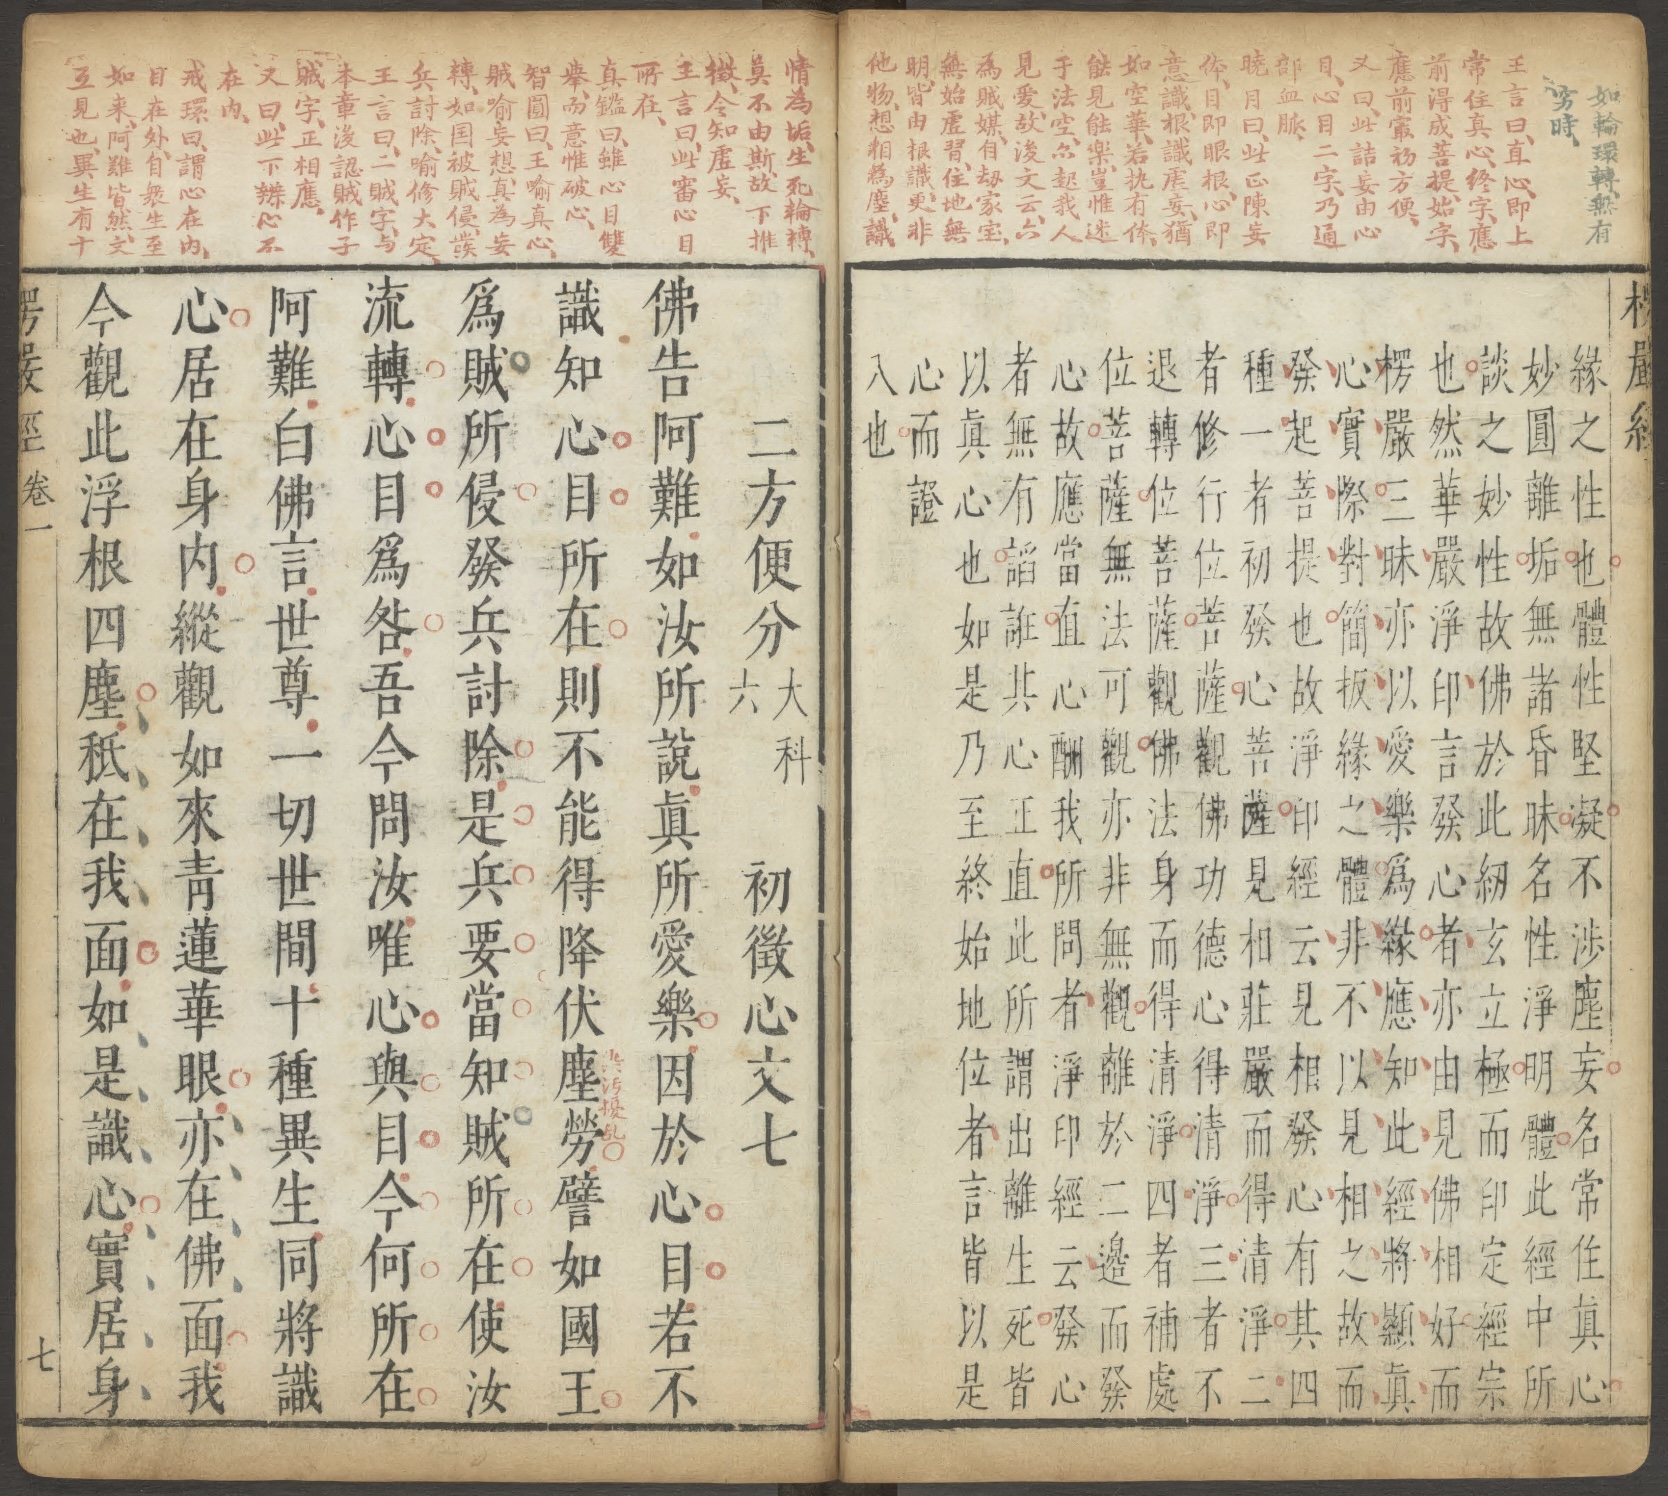 如輪環轉無有
窮時、
王言曰、直心、即上
常住真心、終字、應
前得成菩提、始字、
應前最初方便、
又曰、此詰妄由心
目、心目二字、乃通
部血脈、
曉月曰、此正陳妄
体、目即眼根、心即
意識、根識虛妄、猶
如空華、若执有体、
能見能樂、豈惟迷
于法空、尒起我人
見愛、故後文云、六
為賊媒、自劫家宝、
無始虛習、住地無
明、皆由根識、更非
他物、想相為塵、識
情為垢、生死輪轉、
莫不由斯、故下推
徵、令知虛妄、
王言曰、此審心目
所在、
真鑑曰、雖心目雙
舉、而意惟破心、
智圓曰、王喻真心、
賊喻妄想、真為妄
轉、如国被賊侵、發
兵討除、喻修大定、
王言曰、二賊字、与
本章後認賊作子
賊字、正相應、
又曰、此下辨心不
在内、
戒環曰、謂心在内、
目在外、自衆生至
如来、阿難皆然、文
互見也、異生有十
楞嚴經
緣之性也體性堅凝不涉塵妄名常住真心
妙圓離垢無諸昏昧名性淨明體此經中所
談之妙性故佛於此紉玄立極而印定經宗
也然華嚴淨印言發心者亦由見佛相好而
楞嚴三昧亦以愛樂爲緣應知此經將顯眞
心實際對簡扳緣之體非不以見相之故而
發起菩提也故淨印經云見相發心有其四
種一者初發心菩薩見相莊嚴而得清淨二
者修行位菩薩觀佛功德心得清淨三者不
退轉位菩薩觀佛法身而得清淨四者補處
位菩薩無法可觀亦非無觀離於二邊而發
心故應當直心酬我所問者淨印經云發心
者無有謟誑其心正直此所謂出離生死皆
以眞心也如是乃至終始地位者言皆以是
心而證
入也
二方便分大科六　初徵心文七
佛告阿難如汝所說眞所愛樂因於心目若不
識知心目所在則不能得降伏塵勞譬如國王
爲賊所侵發兵討除是兵要當知賊所在使汝
流轉心目爲咎吾今問汝唯心與目今何所在
阿難白佛言世尊一切世間十種異生同將識
心居在身内縱觀如來青蓮華眼亦在佛面我
今觀此浮根四塵秖在我面如是識心實居身
楞嚴經　卷一　七